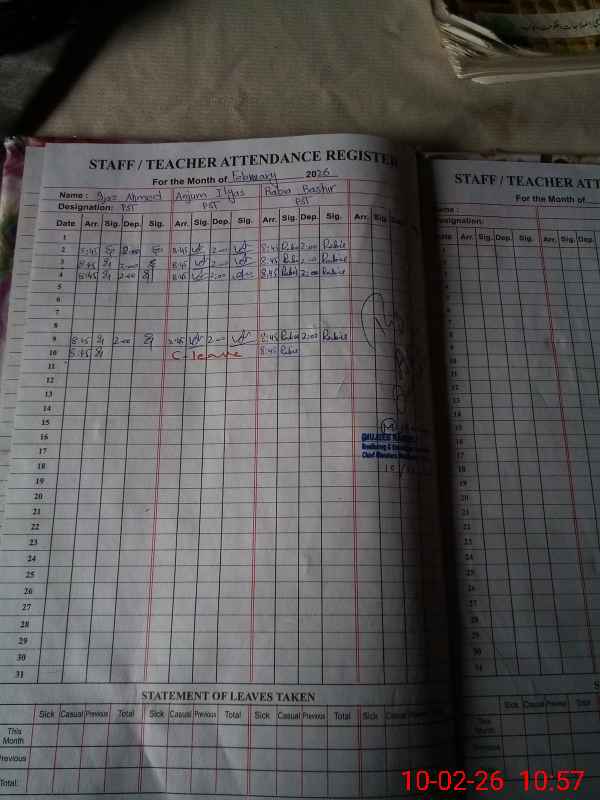 STAFF / TEACHER ATTENDANCE REGISTER
For the Month of February 2026
Name : Ijaz Ahmed Anjum Ilyas Rabia Bashir
Designation: PST PST PST
Date Arr. Sig. Dep. Sig. Arr. Sig. Dep. Sig. Arr. Sig. Dep. Sig. Arr. Sig. Dep.
1
2 8:45 2:00 8:45 2:00 8:45 Rabia 2:00 Rabia
3 8:45 2:00 8:45 2:00 8:45 Rabia 2:00 Rabia
4 8:45 2:00 8:45 2:00 8:45 Rabia 2:00 Rabia
5
6
7
8
9 8:45 2:00 8:45 2:00 8:45 Rabia 2:00 Rabia
10 8:45 C-leave 8:45 Rabia
11
12
13
14
15
16
17
18
19
20
21
22
23
24
25
26
27
28
29
30
31
STATEMENT OF LEAVES TAKEN
Sick Casual Previous Total Sick Casual Previous Total Sick Casual Previous Total Sick Casual Previous Total
This Month
Previous
Total:
STAFF / TEACHER ATT
For the Month of
Name :
Designation:
Date Arr. Sig. Dep. Sig. Arr. Sig.
1
2
3
4
5
6
7
8
9
10
11
12
13
14
15
16
17
18
19
20
21
22
23
24
25
26
27
28
29
30
31
Sick Casual Previous Total Sick
This Month
Previous
Total:
10-02-26 10:57